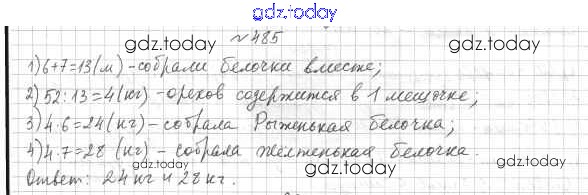 gdz.today
№485
gdz.today
gdz.today
1) 6+7=13(м) - собрали белочки вместе;
2) 52:13=4(кг) - орехов содержится в 1 мешочке;
3) 4·6=24(кг) - собрала Рыженькая белочка;
4) 4·7=28 (кг) - собрала желтенькая белочка.
Ответ: 24 кг и 28 кг.
gdz.today
gdz.today